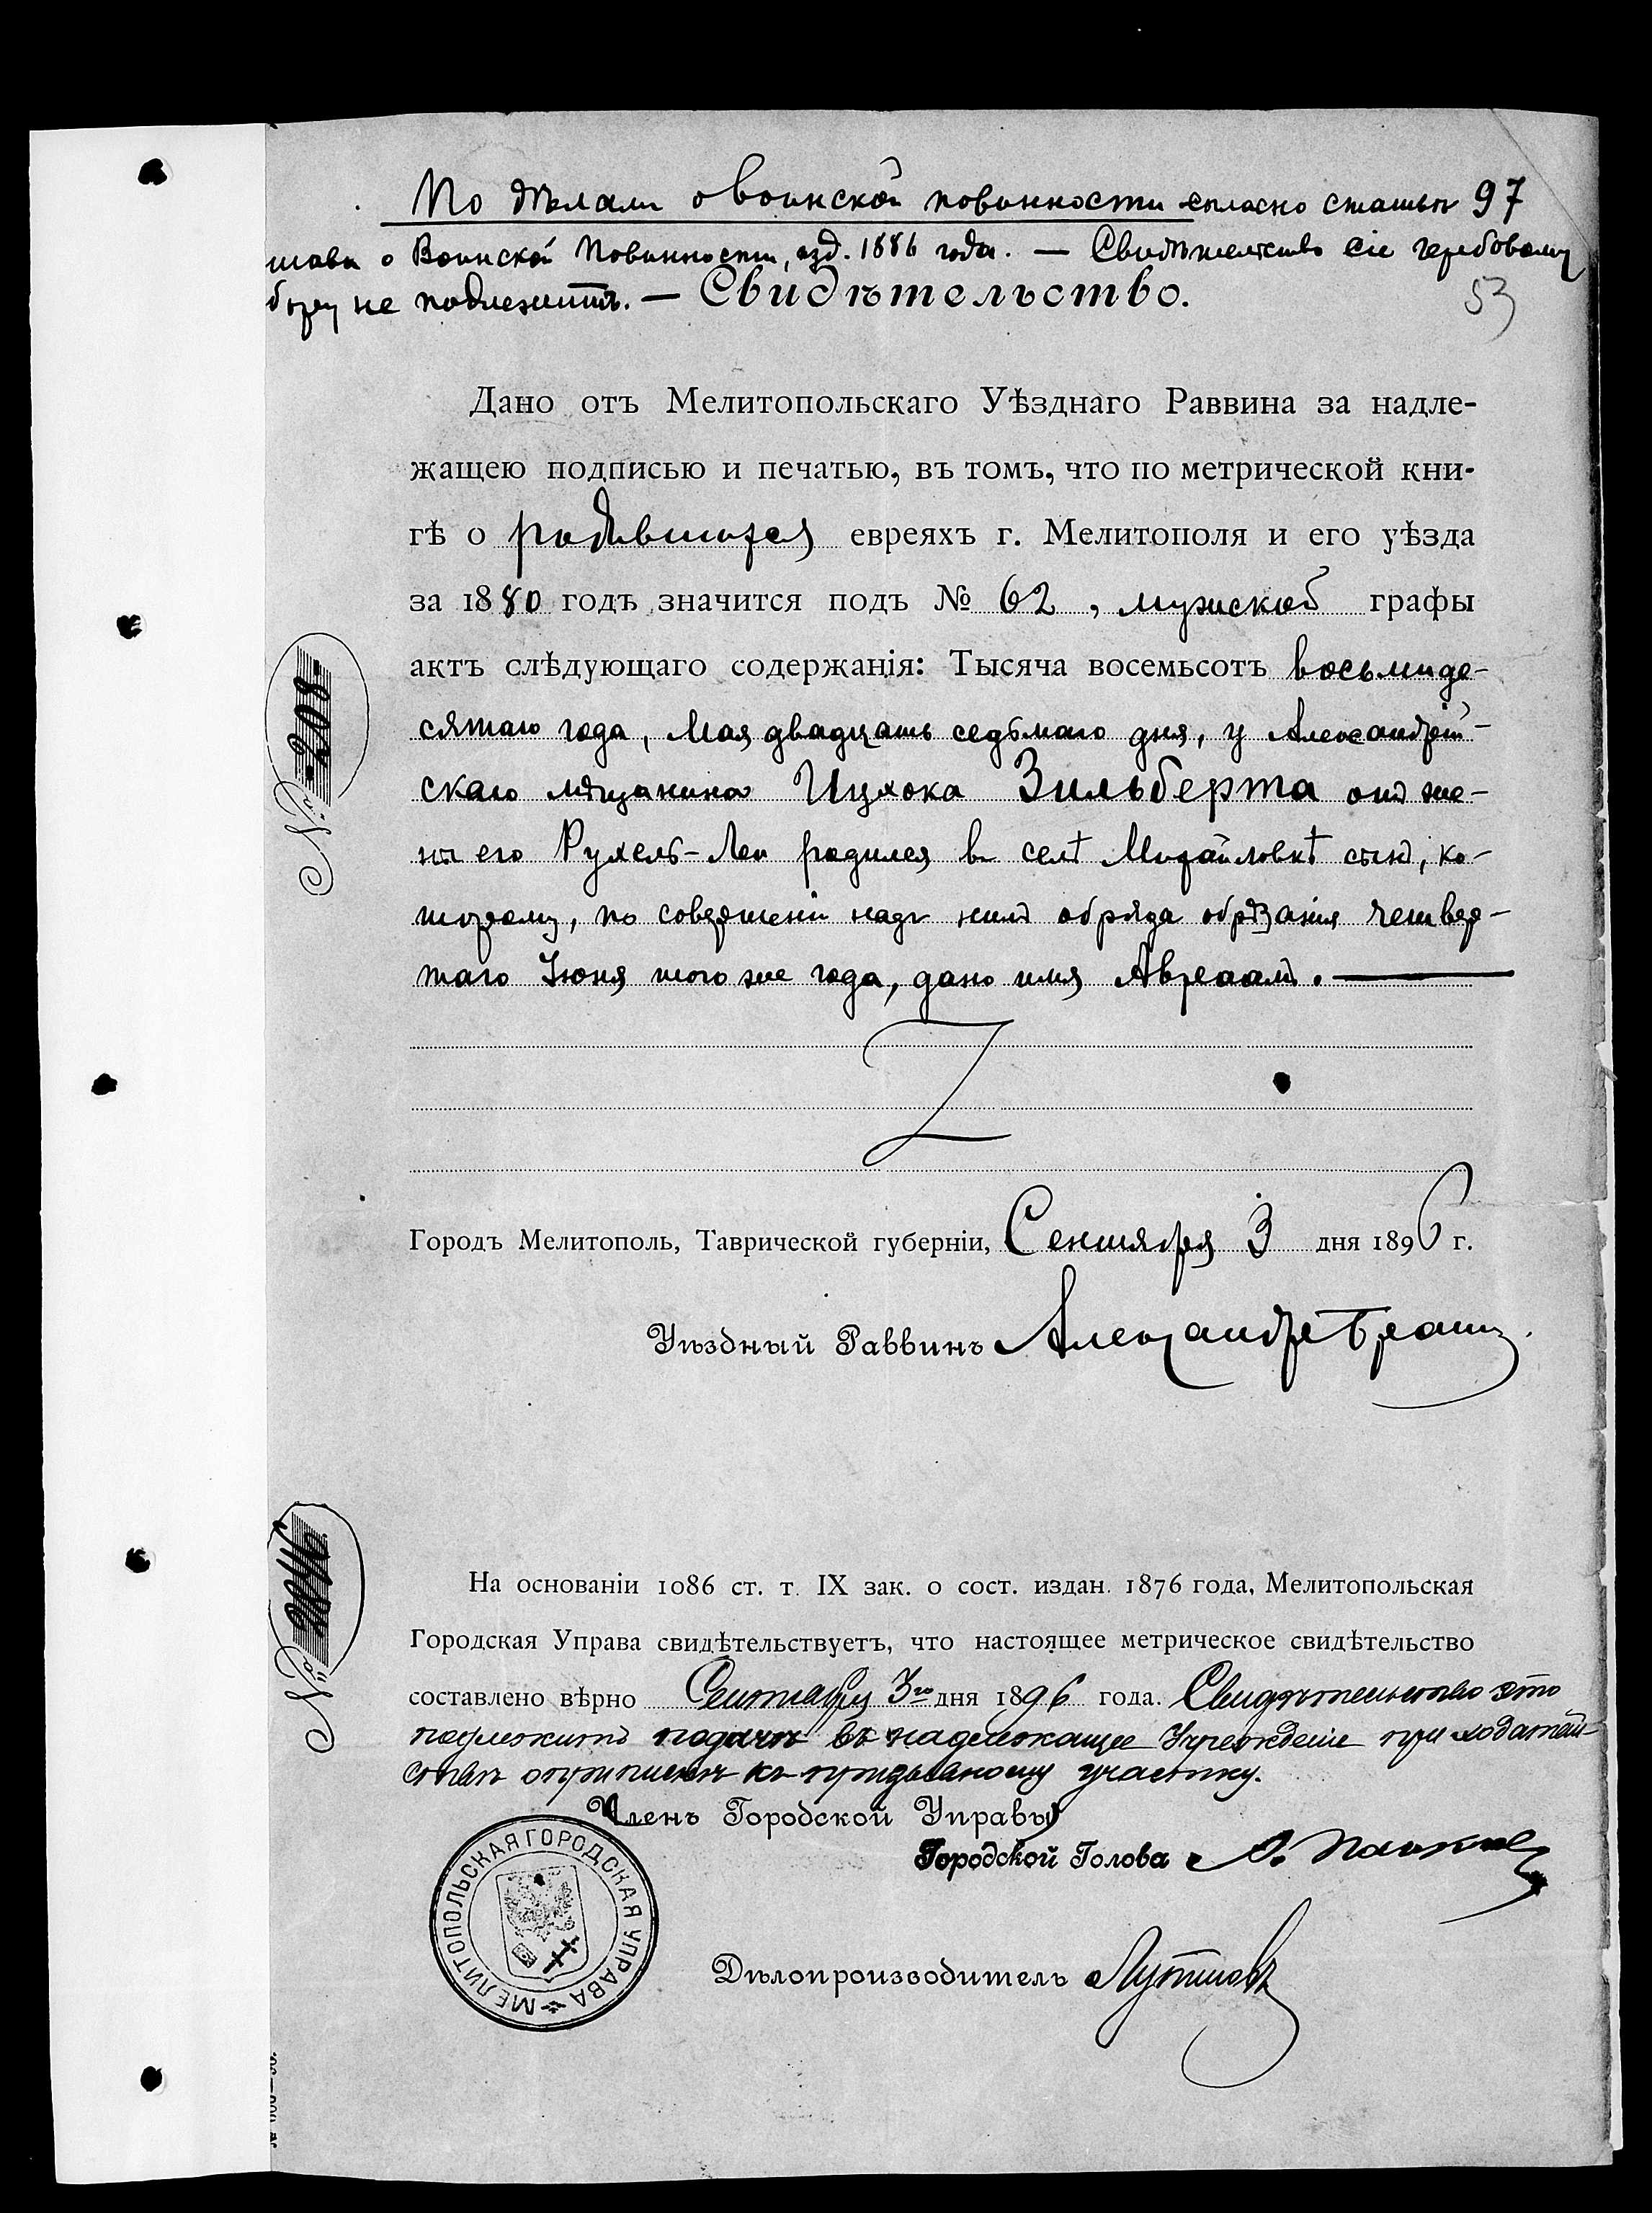 По дѣламъ о воинской повинности согласно статьи 97
устава о Воинской Повинности, изд. 1886 года. — Свидѣтельство сіе гербовому
сбору не подлежитъ. — Свидѣтельство.
53
Дано отъ Мелитопольскаго Уѣзднаго Раввина за надле-
жащею подписью и печатью, въ томъ, что по метрической кни-
гѣ о родившихся евреяхъ г. Мелитополя и его уѣзда
за 1880 годъ значится подъ № 62, мужской графы
актъ слѣдующаго содержанія: Тысяча восемьсотъ восьмиде-
сятаго года, Мая двадцать седьмаго дня, у Александрій-
скаго мѣщанина Ицхока Зильберта отъ же-
ны его Рухель-Леи родился въ селѣ Михайловкѣ сынъ, ко-
торому, по совершеніи надъ нимъ обряда обрѣзанія четвер-
таго Іюня того же года, дано имя Авраамъ. —
Z
№ 208
Городъ Мелитополь, Таврической губерніи, Сентября 3 дня 1896 г.
Уѣздный Раввинъ Александръ
На основаніи 1086 ст. т. IX зак. о сост. издан. 1876 года, Мелитопольская
Городская Управа свидѣтельствуетъ, что настоящее метрическое свидѣтельство
составлено вѣрно Сентября 3го дня 1896 года. Свидѣтельство это
подлежитъ подачѣ въ надлежащее Учрежденіе при ходатай-
ствѣ о припискѣ къ призывному участку.
№
Членъ Городской Управы
Городской Голова
МЕЛИТОПОЛЬСКАЯ ГОРОДСКАЯ УПРАВА
Дѣлопроизводитель